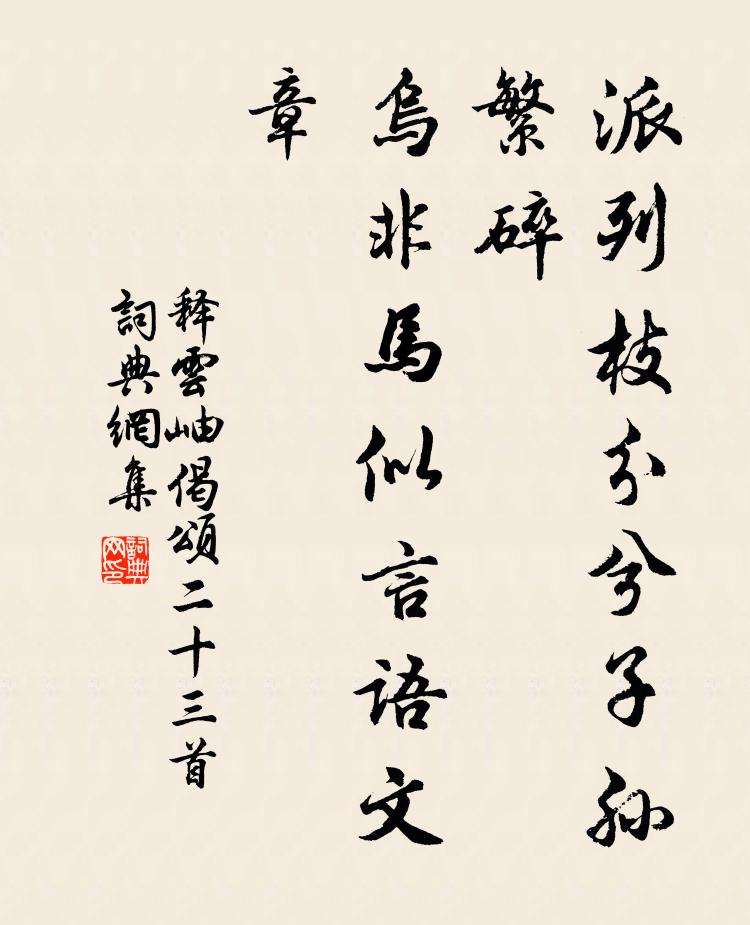 派列枝分兮子孙
繁碎
烏非馬似言語文
章
释雲岫偈頌二十三首
詞典網集
詞典网印